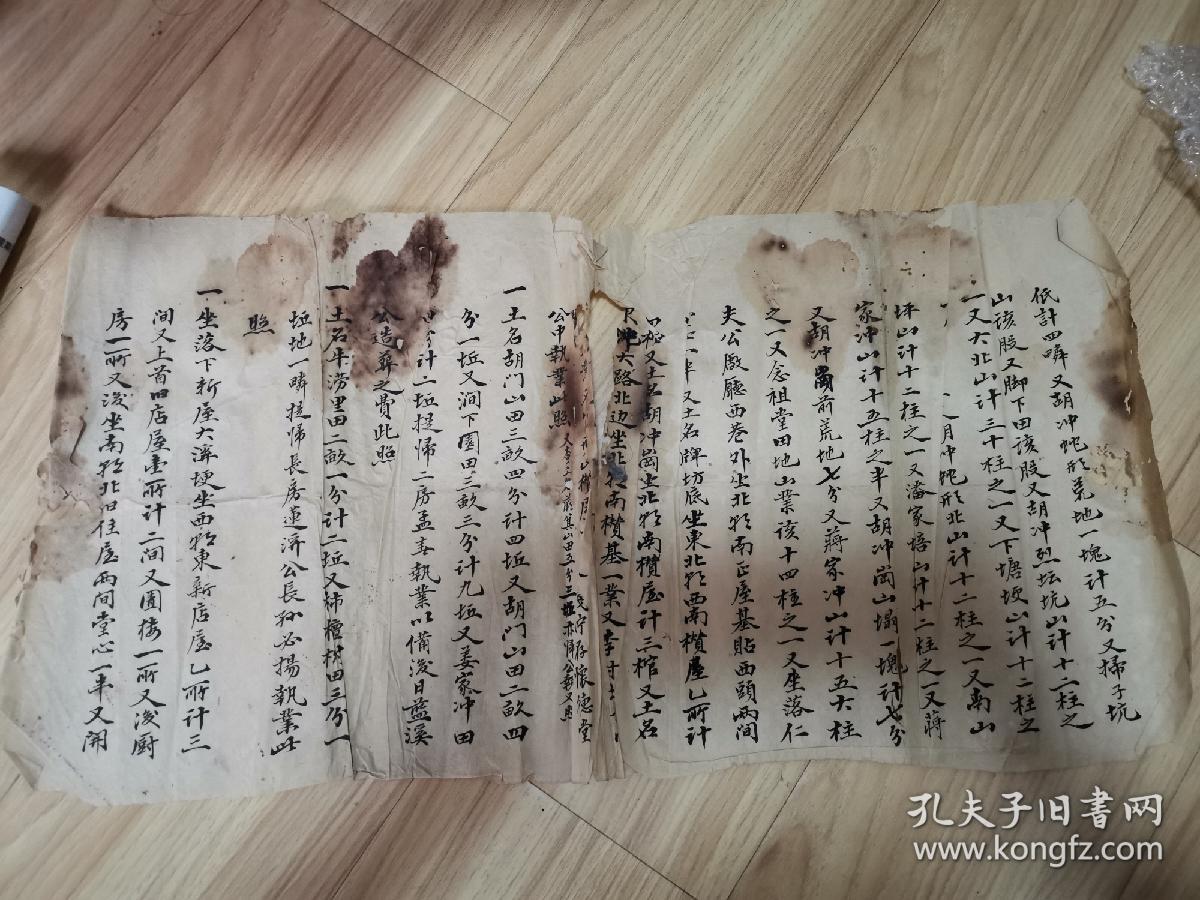 低計四疄又胡冲蛇形荒地一塊計五分又掃子坑
山該股又脚下田該股又胡冲烈坛坑山計十二柱之
一又大北山計三十柱之一又下塘埂山計十二柱之
月冲蛇形北山計十二柱之一又南山
坪山計十二柱之一又潘家塝山計十二柱之一又蔣
家冲山計十五柱之半又胡冲崗山塌一塊計七分
又胡冲前荒地七分又蔣家冲山計十五六柱
之一又念祖堂田地山業該十四柱之一又坐落仁
夫公廒廳西巷外坐北朝南正屋基貼西頭兩間
半又土名牌坊底坐東北朝西南欑屋乙所計
又土名胡冲崗坐北朝南欑屋計三棺又土名
大路北边坐北朝南欑基一業又李
貯存懷德堂
公中執業此照
一土名胡门山田三畝四分計四坵又胡门山田二畝四
分一坵又澗下園田三畝三分計九坵又姜家冲田
分計二坵提歸二房孟壽執業以備後日藍溪
公造葬之費此照
一土名半湾里田二畝一分計二坵又柿檀樹田三分一
坵地一疄提歸長房連済公長孙必揚執業此
照
一坐落下新屋大溝埂坐西朝東新店屋乙所計三
间又上首旧店屋壹所計二间又圊楼一所又後厨
房一所又後坐南朝北旧住屋兩间堂心一半又開
孔夫子旧书网
www.kongfz.com